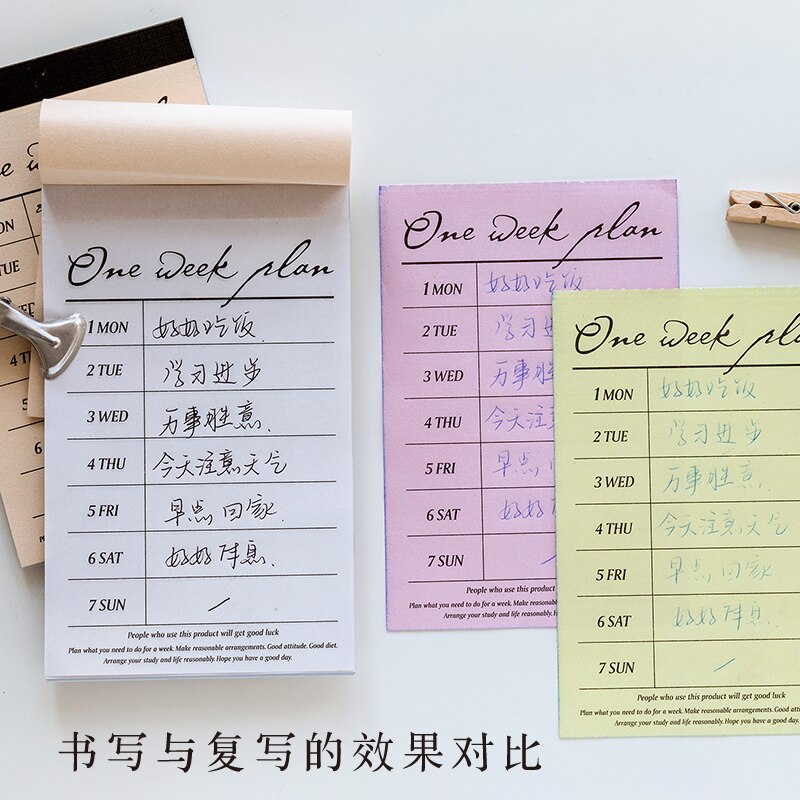 One week plan
1 MON 好好吃饭.
2 TUE 学习进步
3 WED 万事胜意.
4 THU 今天注意天气
5 FRI 早点回家.
6 SAT 好好休息.
7 SUN /
People who use this product will get good luck
Plan what you need to do for a week. Make reasonable arrangements. Good attitude. Good diet.
Arrange your study and life reasonably. Hope you have a good day.
One week plan
1 MON 好好吃饭
2 TUE 学习
3 WED 万事胜
4 THU 今天注
5 FRI 早点
6 SAT 好好
7 SUN
People who use this product
Plan what you need to do for a week. Make reasonable
Arrange your study and life
One week pla
1 MON 好好吃饭
2 TUE 学习进步
3 WED 万事胜意.
4 THU 今天注意天气
5 FRI 早点回家
6 SAT 好好休息.
7 SUN /
People who use this product will get good luck
Plan what you need to do for a week. Make reasonable arrangements. Good atti
Arrange your study and life reasonably. Hope you have a good day.
书写与复写的效果对比